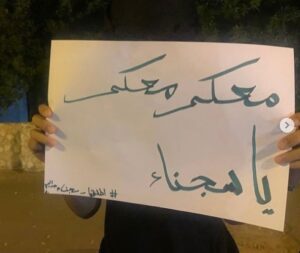 معكم معكم
يا سجناء
# اطلقوا_سجناء